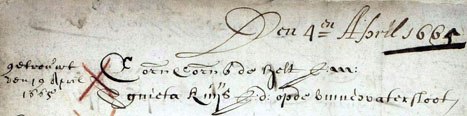 Den 4en April 1665
getrouwt
den 19 April
1665
Corn Corns de Helt J:M:
Agnieta Kuijs J:d: opde binnewatersloot